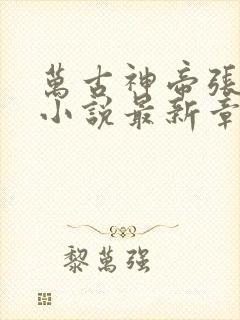 萬古神帝張
小說最新章
黎萬强